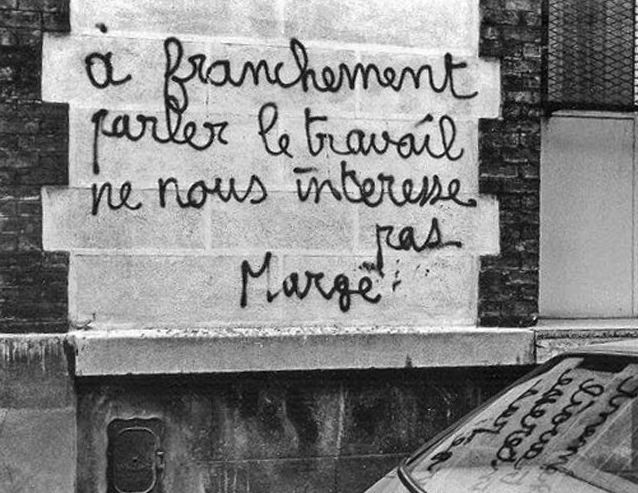 à franchement
parler le travail
ne nous interesse
pas
Margë